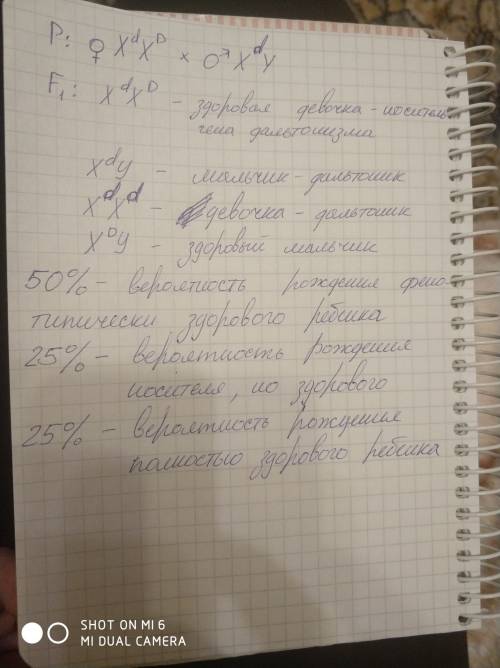 P: ♀ XᵈXᴰ × ♂ XᵈY
F₁: XᵈXᴰ – здоровая девочка – носитель
гена дальтонизма
XᵈY – мальчик – дальтоник
XᵈXᵈ – девочка – дальтоник
XᴰY – здоровый мальчик
50% – вероятность рождения фено-
типически здорового ребёнка
25% – вероятность рождения
носителя, но здорового
25% – вероятность рождения
полностью здорового ребёнка
SHOT ON MI 6
MI DUAL CAMERA